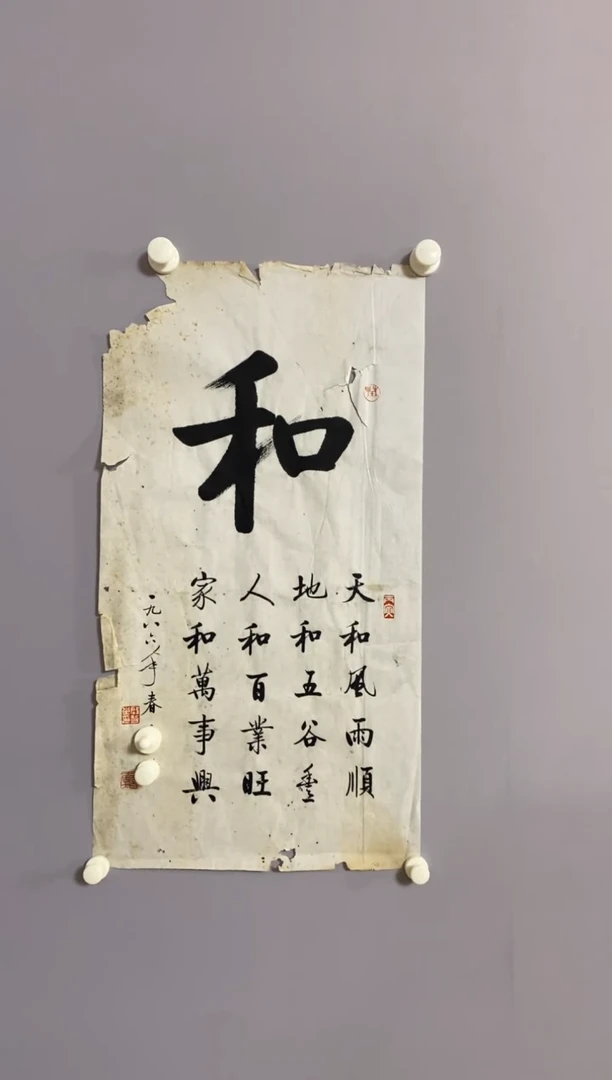 和
天和風雨順
地和五谷豐
人和百業旺
家和萬事興
一九八六年春